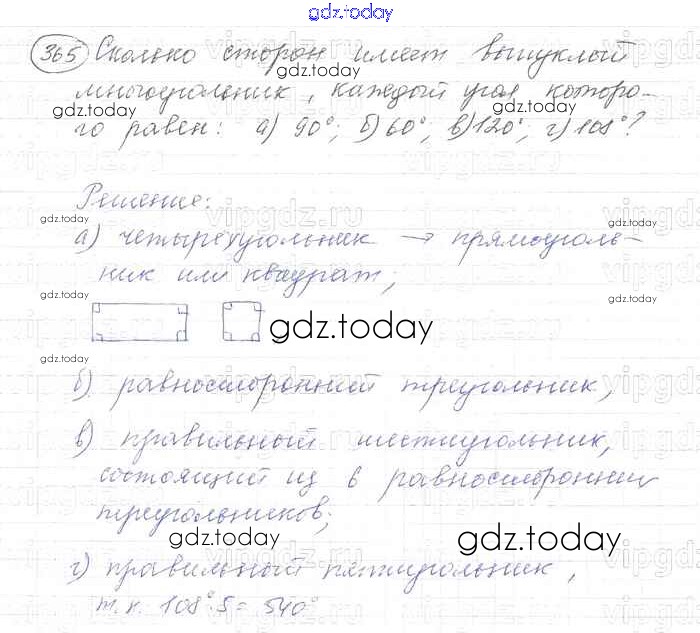 gdz.today
365 Сколько сторон имеет выпуклый
gdz.today
многоугольник, каждый угол которо-
gdz.today
gdz.today
го равен: а) 90°; б) 60°; в) 120°; г) 108°?
Решение:
vipgdz.ru
gdz.today
gdz.today
а) четырехугольник → прямоуголь-
ник или квадрат;
gdz.today
gdz.today
gdz.today
gdz.today
б) равносторонний треугольник,
в) правильный шестиугольник,
gdz.today
состоящий из 6 равносторонних
треугольников;
gdz.today
gdz.today
г) правильный пятиугольник,
gdz.today
т.к. 108°·5 = 540°